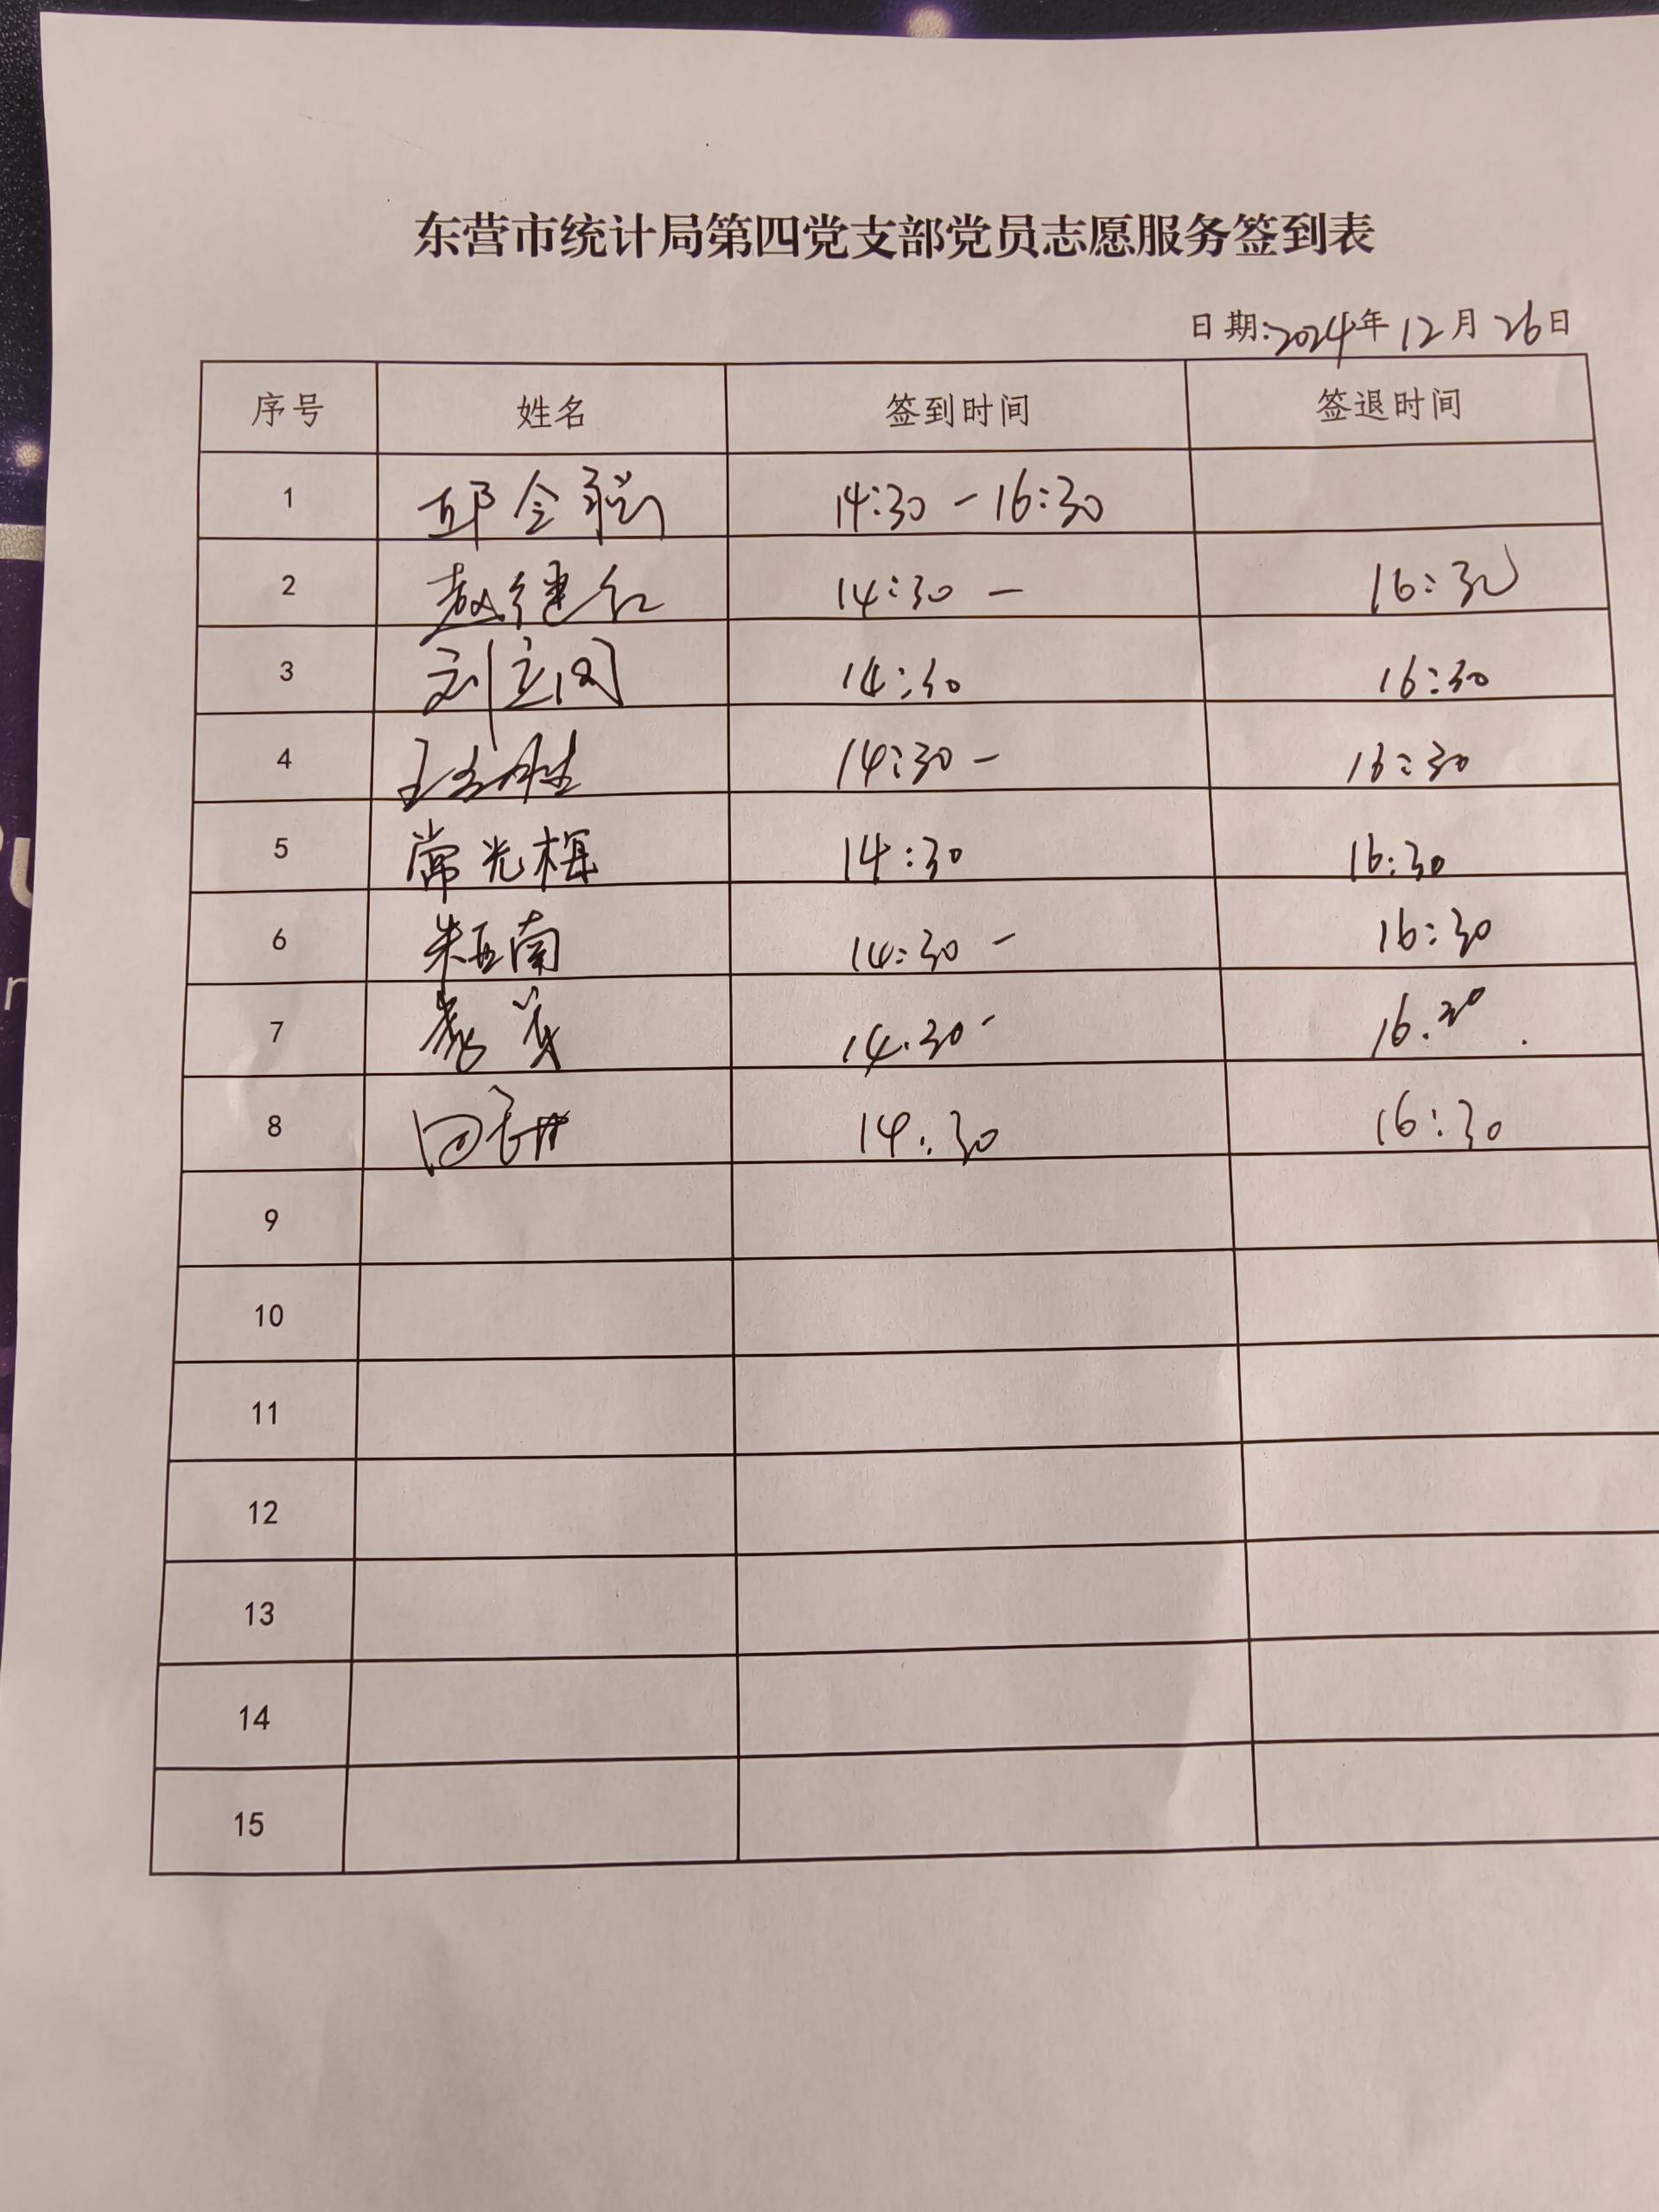 东营市统计局第四党支部党员志愿服务签到表
日期:2024年12月26日
序号 姓名 签到时间 签退时间
1 邱会聪 14:30 - 16:30
2 赵继红 14:30 - 16:30
3 刘立 14:30 16:30
4 王 胜 14:30 - 16:30
5 常光梅 14:30 16:30
6 朱亚南 14:30 - 16:30
7 14.30 - 16.30
8 14:30 16:30
9
10
11
12
13
14
15